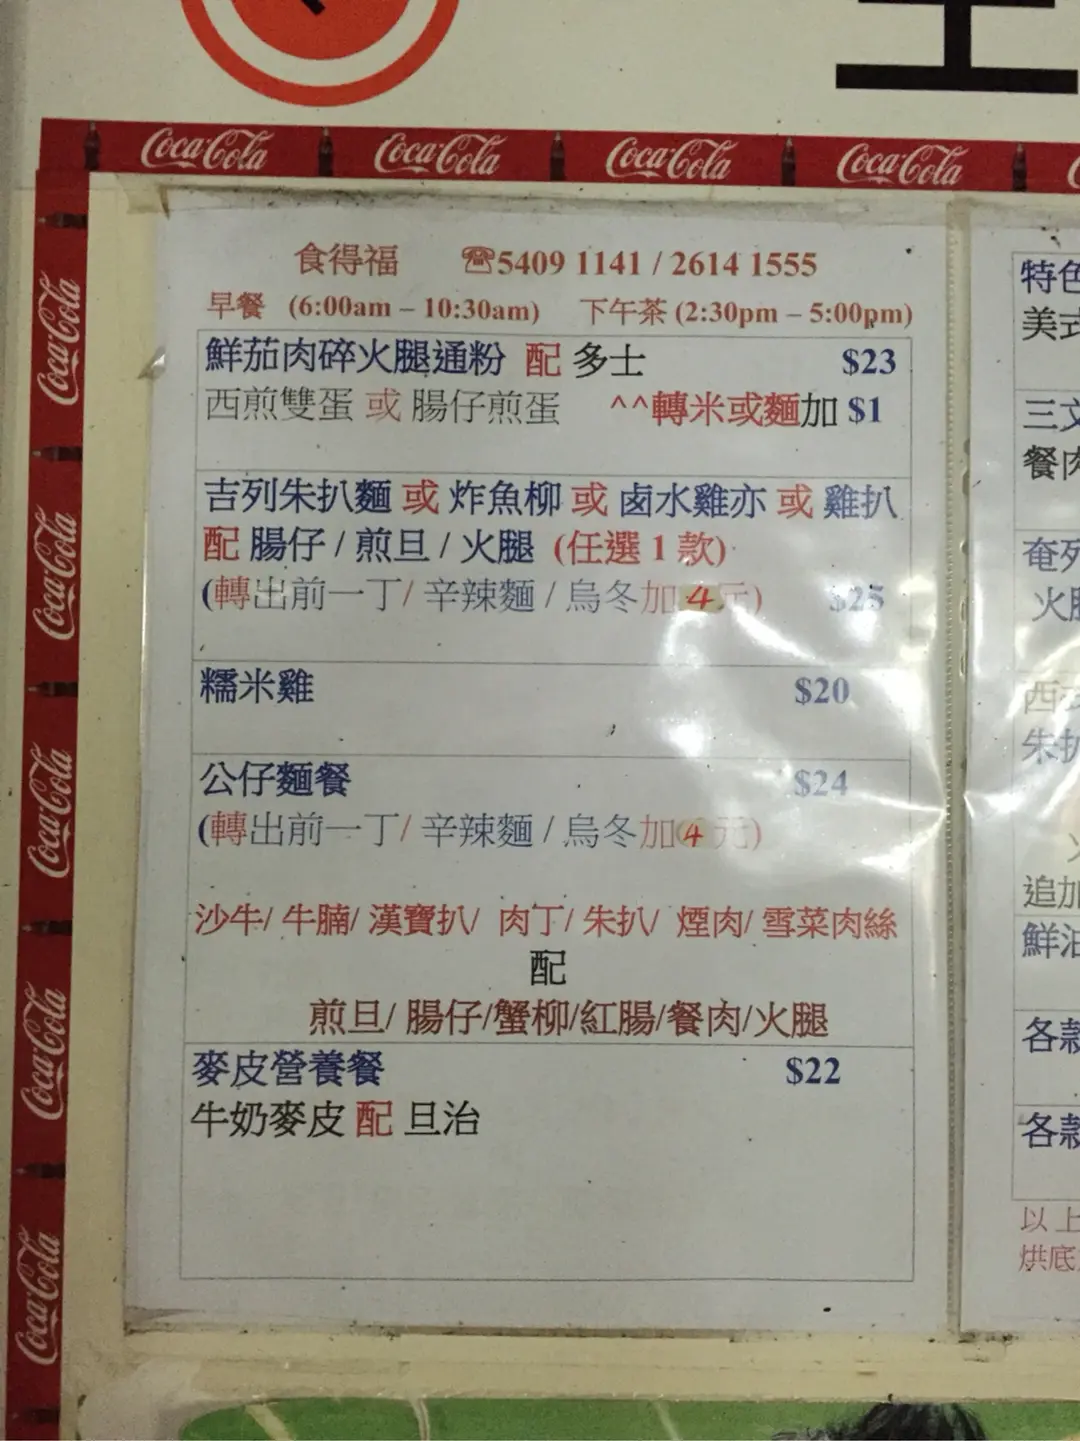 Coca-Cola Coca-Cola Coca-Cola Coca-Cola
Coca-Cola
Coca-Cola
Coca-Cola
Coca-Cola
Coca-Cola
食得福 ☎5409 1141 / 2614 1555
早餐 (6:00am – 10:30am) 下午茶 (2:30pm – 5:00pm)
鮮茄肉碎火腿通粉 配 多士 $23
西煎雙蛋 或 腸仔煎蛋 ^^轉米或麵加 $1
吉列朱扒麵 或 炸魚柳 或 鹵水雞亦 或 雞扒
配 腸仔 / 煎旦 / 火腿 (任選 1 款)
(轉出前一丁/ 辛辣麵 / 烏冬加 4 元) $25
糯米雞 $20
公仔麵餐 $24
(轉出前一丁/ 辛辣麵 / 烏冬加 4 元)
沙牛/ 牛腩/ 漢寶扒/ 肉丁/ 朱扒/ 煙肉/ 雪菜肉絲
配
煎旦/ 腸仔/蟹柳/紅腸/餐肉/火腿
麥皮營養餐 $22
牛奶麥皮 配 旦治
特色
美式
三文
餐肉
奄列
火腿
西式
朱扒
追加
鮮油
各款
各款
以上
烘底